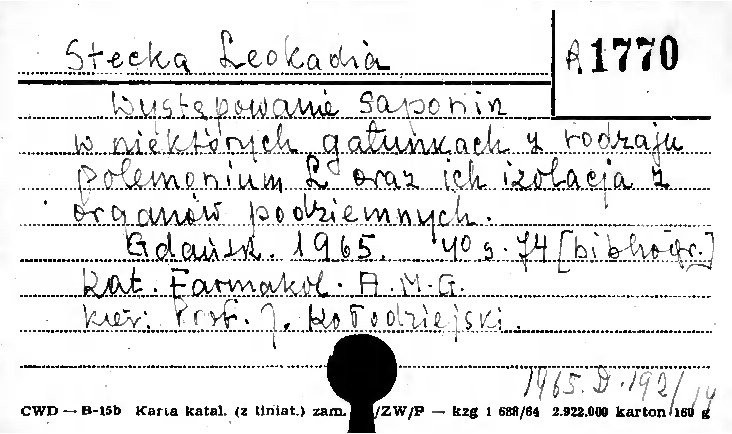 Stecka Leokadia A 1770
Występowanie saponin
w niektórych gatunkach z rodzaju
Polemonium L oraz ich izolacja z
organów podziemnych.
Gdańsk. 1965. 40 s. 74 [bibliogr.]
Kat. Farmakol. A.M.G.
Kier: Prof. J. Kołodziejski.
1965. D. 192/14
CWD — B-15b Karta katal. (z liniat.) zam. /ZW/P — kzg 1 688/64 2.922.000 karton 160 g